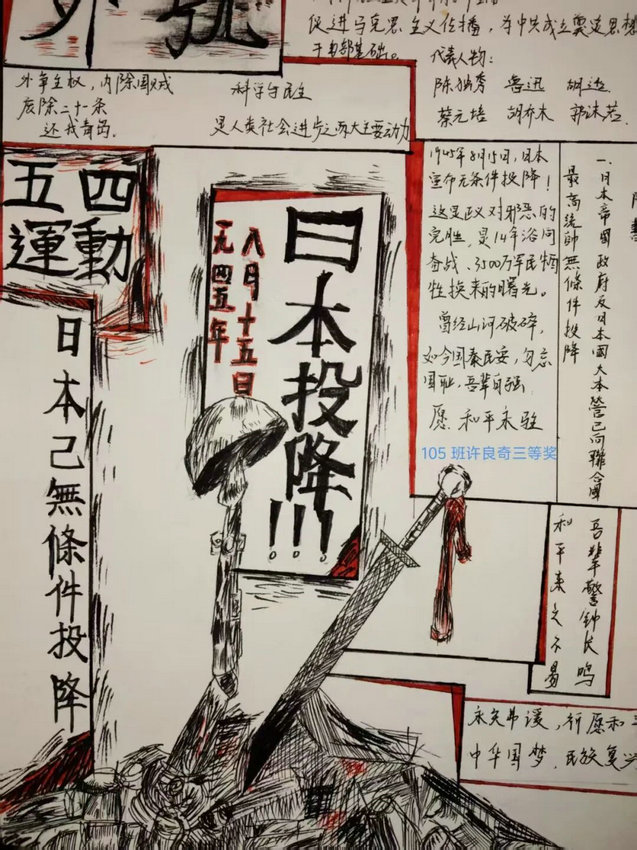 外號
促进马克思主义传播，为中共成立奠定思想
干部基础。
代表人物：
陈独秀 鲁迅 胡适
蔡元培 胡乔木 郭沫若
外争主权，内除国贼
废除二十一条
还我青岛。
科学与民主
是人类社会进步之两大主要动力
五四
運動
日本己無條件投降
八月十五日
一九四五年
日本投降!!!
1945年8月15日，日本
宣布无条件投降！
这是正义对邪恶的
完胜，是14年浴血
奋战、3500万军民牺
牲换来的曙光。
曾经山河破碎，
如今国泰民安，勿忘
国耻，吾辈自强
愿 和平永驻
105 班许良奇三等奖
一、日本帝國政府及日本國大本營已向聯合國
最高統帥無條件投降
吾辈警钟长鸣
和平来之不易
中华国梦，民族复兴